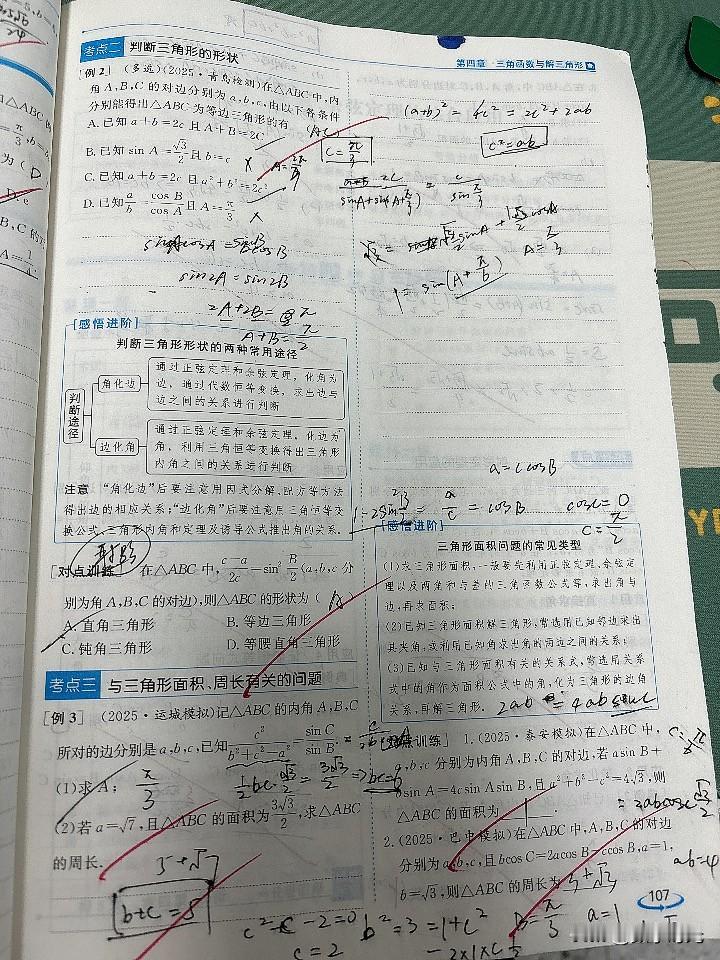 考点二 判断三角形的形状
第四章 三角函数与解三角形
[例2] (多选)(2025·青岛检测)在△ABC中,内
角A,B,C的对边分别为a,b,c,由以下各条件
分别能得出△ABC为等边三角形的有
A.已知a+b=2c且A+B=2C
B.已知sin A=√3/2且b=c
C.已知a+b=2c且a²+b²=2c²
D.已知a/b=cos B/cos A且A=π/3
(AC)
C=π/3
(a+b)²=4c²=2c²+2ab
c²=ab
sin2A=sin2B
2A+2B=π
A+B=π/2
A=π/3
1=sin(A+π/6)
[感悟进阶]
判断三角形形状的两种常用途径
判断途径
角化边
通过正弦定理和余弦定理,化角为
边,通过代数恒等变换,求出边与
边之间的关系进行判断
边化角
通过正弦定理和余弦定理,化边为
角,利用三角恒等变换得出三角形
内角之间的关系进行判断
注意 “角化边”后要注意用因式分解、配方等方法
得出边的相应关系;“边化角”后要注意用三角恒等变
换公式、三角形内角和定理及诱导公式推出角的关系.
[对点训练] 在△ABC中,(c-a)/2c=sin² B/2(a,b,c分
别为角A,B,C的对边),则△ABC的形状为(A
A.直角三角形 B.等边三角形
C.钝角三角形 D.等腰直角三角形
考点三 与三角形面积、周长有关的问题
[例3] (2025·运城模拟)记△ABC的内角A,B,C
所对的边分别是a,b,c,已知c²/(b²+c²-a²)=sin C/sin B.
(1)求A; π/3
½bc·√3/2=3√3/2⇒bc=6
(2)若a=√7,且△ABC的面积为3√3/2,求△ABC
的周长. 5+√7
b+c=5
a=ccosB
1-2sin²B/2=a/c=cosB
cosC=0
C=π/2
[感悟进阶]
三角形面积问题的常见类型
(1)求三角形面积,一般要先利用正弦定理、余弦定
理以及两角和与差的三角函数公式等,求出角与
边,再求面积;
(2)已知三角形面积解三角形,常选用已知邻边求出
其夹角,或利用已知角求出角的两边之间的关系;
(3)已知与三角形面积有关的关系式,常选用关系
式中的角作为面积公式中的角,化为三角形的边角
关系,再解三角形.
2ab=4absinC
训练] 1.(2025·泰安模拟)在△ABC中,
a,b,c分别为内角A,B,C的对边.若asin B+
bsin A=4csin Asin B,且a²+b²-c²=4√3,则
△ABC的面积为 1 .
C=π/6
=2abcosC
ab=4
2.(2025·巴中模拟)在△ABC中,A,B,C的对边
分别为a,b,c,且bcos C=2acos B-ccos B,a=1,
b=√3,则△ABC的周长为3+√3
B=π/3 a=1
b²=3=1+c²
-2×1×c½
c²-c-2=0
c=2
107